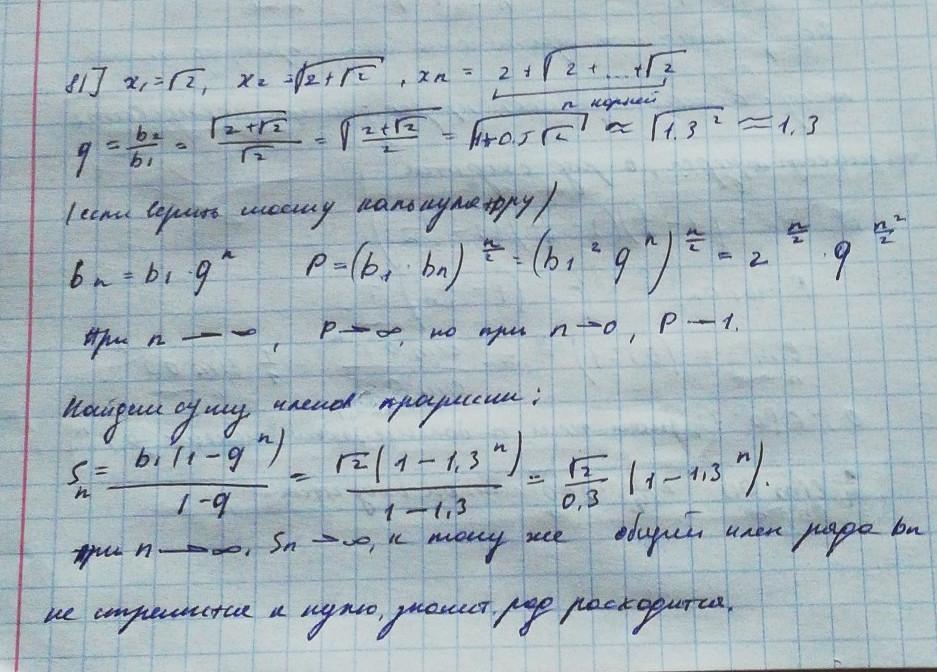 81] x₁ = √2, x₂ = √(2+√2), xₙ = 2+√(2+...+√2)
n корней
q = b₂/b₁ = √(2+√2)/√2 = √((2+√2)/2) = √(1+0.5√2) ≈ √(1.3²) ≈ 1,3
(если верить моему калькулятору)
bₙ = b₁·qⁿ P = (b₁·bₙ)^(n/2) = (b₁² qⁿ)^(n/2) = 2^(n/2) · q^(n²/2)
при n → ∞, P → ∞, но при n → 0, P → 1.
Найдем сумму членов прогрессии:
Sₙ = b₁(1-qⁿ)/(1-q) = √2(1-1,3ⁿ)/(1-1,3) = √2/0,3 (1-1,3ⁿ).
при n → ∞, Sₙ → ∞, к тому же общий член ряда bₙ
не стремится к нулю, значит ряд расходится.